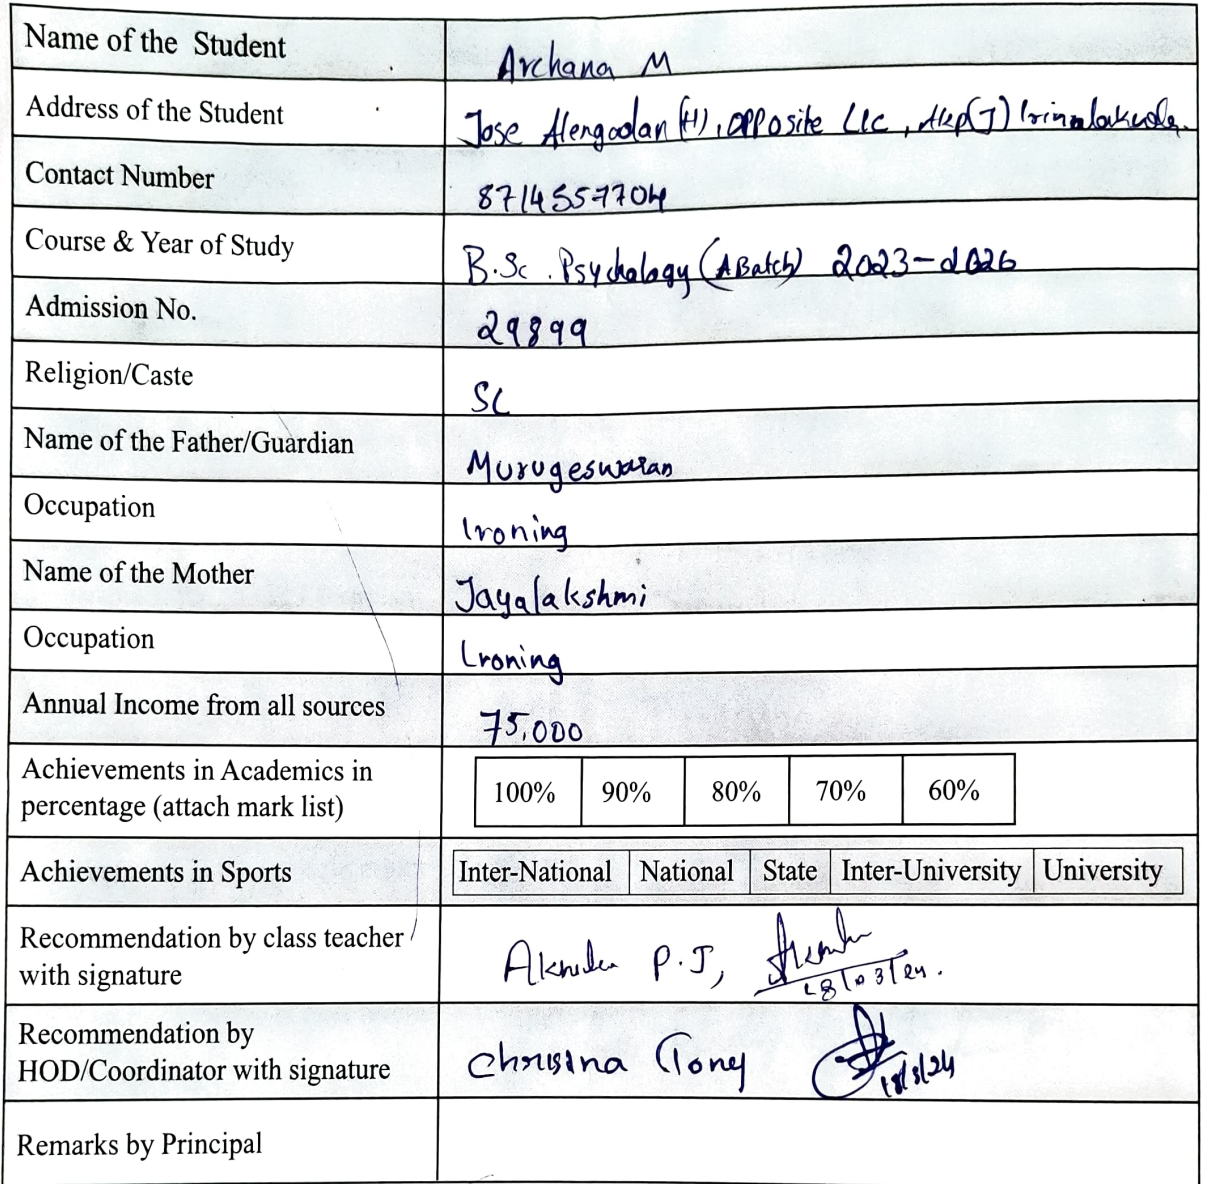 Name of the Student Archana M
Address of the Student Jose Alengadan (H), opposite LIC, AKP(J) Irinalakuda.
Contact Number 8714557704
Course & Year of Study B.Sc. Psychology (A Batch) 2023-2026
Admission No. 29899
Religion/Caste SC
Name of the Father/Guardian Murugeswaran
Occupation Ironing
Name of the Mother Jayalakshmi
Occupation Ironing
Annual Income from all sources 75,000
Achievements in Academics in
percentage (attach mark list) 100% 90% 80% 70% 60%
Achievements in Sports Inter-National National State Inter-University University
Recommendation by class teacher
with signature P.J, 18/03/24.
Recommendation by
HOD/Coordinator with signature Chrisina Tony 18/3/24
Remarks by Principal